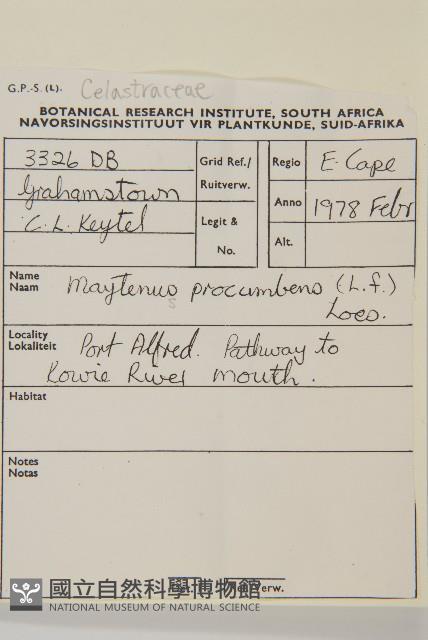 G.P.-S. (L). Celastraceae
BOTANICAL RESEARCH INSTITUTE, SOUTH AFRICA
NAVORSINGSINSTITUUT VIR PLANTKUNDE, SUID-AFRIKA
3326 DB
Grahamstown
C. L. Keytel
Grid Ref./
Ruitverw.
Legit &
No.
Regio E. Cape
Anno 1978 Febr
Alt.
Name
Naam
Maytenus procumbens (L.f.)
s
Loes.
Locality
Lokaliteit
Port Alfred. Pathway to
Kowie River mouth.
Habitat
Notes
Notas
國立自然科學博物館
NATIONAL MUSEUM OF NATURAL SCIENCE